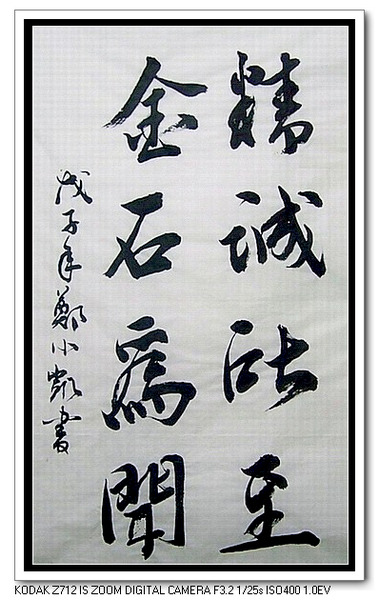 精誠所至
金石為聞
戊子年鄭小凱書
KODAK Z712 IS ZOOM DIGITAL CAMERA F3.2 1/25s ISO400 1.0EV